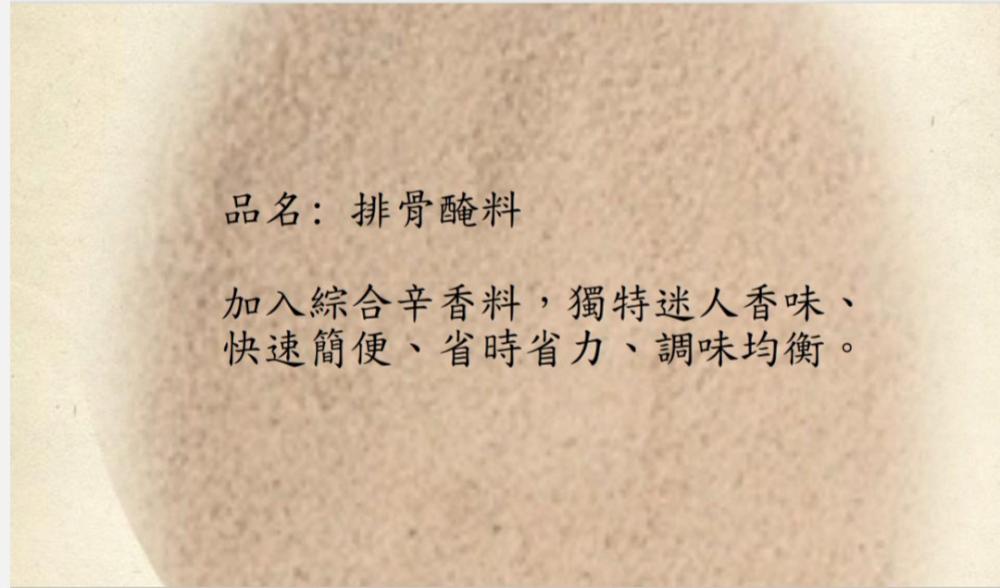 品名: 排骨醃料
加入綜合辛香料，獨特迷人香味、
快速簡便、省時省力、調味均衡。